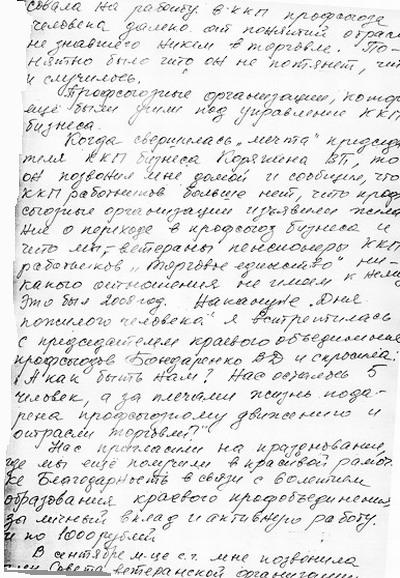 совала на работу в ККП профсоюза
человека далеко от понятий отрасли
не знавшего никем в торговле. По-
нятно было что он не потянет, что
и случилось.
Профсоюзные организации, котор
ещё были ушли под управление ККП
бизнеса.
Когда свершилась "мечта" председа
теля ККП бизнеса Корякина ВП, то
он позвонил мне домой и сообщил, что
ККП работников больше нет, что проф
союзные организации изъявили жела
ние о переходе в профсоюз бизнеса и
что мы, ветераны пенсионеры ККП
работников "Торговое единство" ни-
какого отношения не имеем к ним
Это был 2008 год. Накануне "Дня
пожилого человека" я встретилась
с председателем краевого объединения
профсоюзов Бондаренко ВД и спросила:
"А как быть нам? Нас осталось 5
человек, а за плечами жизнь пода-
рена профсоюзному движению и
отрасли торговли?"
Нас пригласили на празднование,
где мы ещё получили в красивой рамоч
ке Благодарность в связи с 60летием
образования краевого профобъединения,
за личный вклад и активную работу.
и по 1000 рублей
В сентябре м-це с.г. мне позвонила
Совета ветеранской организации